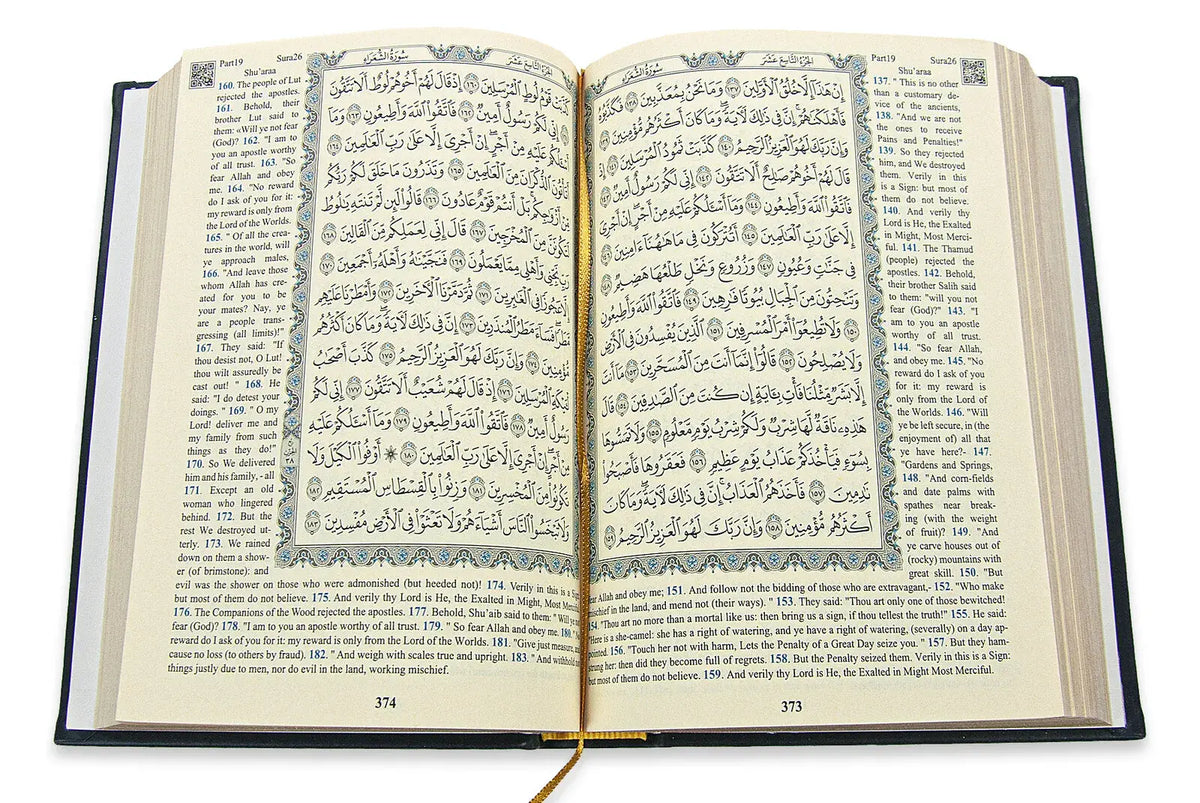 الجزء التاسع عشر
سورة الشعراء
Part19 Sura26
Shu'araa
إِنْ هَٰذَآ إِلَّا خُلُقُ ٱلْأَوَّلِينَ ١٣٧ وَمَا نَحْنُ بِمُعَذَّبِينَ ١٣٨ فَكَذَّبُوهُ
فَأَهْلَكْنَٰهُمْ إِنَّ فِى ذَٰلِكَ لَءَايَةً وَمَا كَانَ أَكْثَرُهُم مُّؤْمِنِينَ ١٣٩
وَإِنَّ رَبَّكَ لَهُوَ ٱلْعَزِيزُ ٱلرَّحِيمُ ١٤٠ كَذَّبَتْ ثَمُودُ ٱلْمُرْسَلِينَ ١٤١ إِذْ
قَالَ لَهُمْ أَخُوهُمْ صَٰلِحٌ أَلَا تَتَّقُونَ ١٤٢ إِنِّى لَكُمْ رَسُولٌ أَمِينٌ ١٤٣
فَٱتَّقُوا۟ ٱللَّهَ وَأَطِيعُونِ ١٤٤ وَمَآ أَسْـَٔلُكُمْ عَلَيْهِ مِنْ أَجْرٍ إِنْ أَجْرِىَ
إِلَّا عَلَىٰ رَبِّ ٱلْعَٰلَمِينَ ١٤٥ أَتُتْرَكُونَ فِى مَا هَٰهُنَآ ءَامِنِينَ ١٤٦
فِى جَنَّٰتٍ وَعُيُونٍ ١٤٧ وَزُرُوعٍ وَنَخْلٍ طَلْعُهَا هَضِيمٌ ١٤٨
وَتَنْحِتُونَ مِنَ ٱلْجِبَالِ بُيُوتًا فَٰرِهِينَ ١٤٩ فَٱتَّقُوا۟ ٱللَّهَ وَأَطِيعُونِ
١٥٠ وَلَا تُطِيعُوٓا۟ أَمْرَ ٱلْمُسْرِفِينَ ١٥١ ٱلَّذِينَ يُفْسِدُونَ فِى ٱلْأَرْضِ
وَلَا يُصْلِحُونَ ١٥٢ قَالُوٓا۟ إِنَّمَآ أَنتَ مِنَ ٱلْمُسَحَّرِينَ ١٥٣ مَآ أَنتَ
إِلَّا بَشَرٌ مِّثْلُنَا فَأْتِ بِـَٔايَةٍ إِن كُنتَ مِنَ ٱلصَّٰدِقِينَ ١٥٤ قَالَ
هَٰذِهِۦ نَاقَةٌ لَّهَا شِرْبٌ وَلَكُمْ شِرْبُ يَوْمٍ مَّعْلُومٍ ١٥٥ وَلَا تَمَسُّوهَا
بِسُوٓءٍ فَيَأْخُذَكُمْ عَذَابُ يَوْمٍ عَظِيمٍ ١٥٦ فَعَقَرُوهَا فَأَصْبَحُوا۟
نَٰدِمِينَ ١٥٧ فَأَخَذَهُمُ ٱلْعَذَابُ إِنَّ فِى ذَٰلِكَ لَءَايَةً وَمَا كَانَ
أَكْثَرُهُم مُّؤْمِنِينَ ١٥٨ وَإِنَّ رَبَّكَ لَهُوَ ٱلْعَزِيزُ ٱلرَّحِيمُ ١٥٩
137. "This is no other
than a customary de-
vice of the ancients,
138. "And we are not
the ones to receive
Pains and Penalties!"
139. So they rejected
him, and We destroyed
them. Verily in this
is a Sign: but most of
them do not believe.
140. And verily thy
Lord is He, the Exalted
in Might, Most Merci-
ful. 141. The Thamud
(people) rejected the
apostles. 142. Behold,
their brother Salih said
to them: "will you not
fear (God)?" 143. "I
am to you an apostle
worthy of all trust.
144. "So fear Allah,
and obey me. 145. "No
reward do I ask of you
for it: my reward is
only from the Lord of
the Worlds. 146. "Will
ye be left secure, in (the
enjoyment of) all that
ye have here?- 147.
"Gardens and Springs,
148. "And corn-fields
and date palms with
spathes near break-
ing (with the weight
of fruit)? 149. "And
ye carve houses out of
(rocky) mountains with
great skill. 150. "But
fear Allah and obey me; 151. And follow not the bidding of those who are extravagant,- 152. "Who make
mischief in the land, and mend not (their ways). " 153. They said: "Thou art only one of those bewitched!
154. "Thou art no more than a mortal like us: then bring us a sign, if thou tellest the truth!" 155. He said:
"Here is a she-camel: she has a right of watering, and ye have a right of watering, (severally) on a day ap-
pointed. 156. "Touch her not with harm, Lets the Penalty of a Great Day seize you. " 157. But they ham-
strung her: then did they become full of regrets. 158. But the Penalty seized them. Verily in this is a Sign:
but most of them do not believe. 159. And verily thy Lord is He, the Exalted in Might Most Merciful.
373
الجزء التاسع عشر
سورة الشعراء
Part19 Sura26
Shu'araa
كَذَّبَتْ قَوْمُ لُوطٍ ٱلْمُرْسَلِينَ ١٦٠ إِذْ قَالَ لَهُمْ أَخُوهُمْ لُوطٌ أَلَا تَتَّقُونَ
١٦١ إِنِّى لَكُمْ رَسُولٌ أَمِينٌ ١٦٢ فَٱتَّقُوا۟ ٱللَّهَ وَأَطِيعُونِ ١٦٣ وَمَآ
أَسْـَٔلُكُمْ عَلَيْهِ مِنْ أَجْرٍ إِنْ أَجْرِىَ إِلَّا عَلَىٰ رَبِّ ٱلْعَٰلَمِينَ ١٦٤
أَتَأْتُونَ ٱلذُّكْرَانَ مِنَ ٱلْعَٰلَمِينَ ١٦٥ وَتَذَرُونَ مَا خَلَقَ لَكُمْ رَبُّكُم
مِّنْ أَزْوَٰجِكُم بَلْ أَنتُمْ قَوْمٌ عَادُونَ ١٦٦ قَالُوا۟ لَئِن لَّمْ تَنتَهِ يَٰلُوطُ
لَتَكُونَنَّ مِنَ ٱلْمُخْرَجِينَ ١٦٧ قَالَ إِنِّى لِعَمَلِكُم مِّنَ ٱلْقَالِينَ ١٦٨
رَبِّ نَجِّنِى وَأَهْلِى مِمَّا يَعْمَلُونَ ١٦٩ فَنَجَّيْنَٰهُ وَأَهْلَهُۥٓ أَجْمَعِينَ ١٧٠
إِلَّا عَجُوزًا فِى ٱلْغَٰبِرِينَ ١٧١ ثُمَّ دَمَّرْنَا ٱلْءَاخَرِينَ ١٧٢ وَأَمْطَرْنَا عَلَيْهِم
مَّطَرًا فَسَآءَ مَطَرُ ٱلْمُنذَرِينَ ١٧٣ إِنَّ فِى ذَٰلِكَ لَءَايَةً وَمَا كَانَ أَكْثَرُهُم
مُّؤْمِنِينَ ١٧٤ وَإِنَّ رَبَّكَ لَهُوَ ٱلْعَزِيزُ ٱلرَّحِيمُ ١٧٥ كَذَّبَ أَصْحَٰبُ
لْـَٔيْكَةِ ٱلْمُرْسَلِينَ ١٧٦ إِذْ قَالَ لَهُمْ شُعَيْبٌ أَلَا تَتَّقُونَ ١٧٧ إِنِّى لَكُمْ
رَسُولٌ أَمِينٌ ١٧٨ فَٱتَّقُوا۟ ٱللَّهَ وَأَطِيعُونِ ١٧٩ وَمَآ أَسْـَٔلُكُمْ عَلَيْهِ
مِنْ أَجْرٍ إِنْ أَجْرِىَ إِلَّا عَلَىٰ رَبِّ ٱلْعَٰلَمِينَ ١٨٠ ۞ أَوْفُوا۟ ٱلْكَيْلَ وَلَا
تَكُونُوا۟ مِنَ ٱلْمُخْسِرِينَ ١٨١ وَزِنُوا۟ بِٱلْقِسْطَاسِ ٱلْمُسْتَقِيمِ ١٨٢
وَلَا تَبْخَسُوا۟ ٱلنَّاسَ أَشْيَآءَهُمْ وَلَا تَعْثَوْا۟ فِى ٱلْأَرْضِ مُفْسِدِينَ ١٨٣
160. The people of Lut
rejected the apostles.
161. Behold, their
brother Lut said to
them: «Will ye not fear
(God)? 162. "I am to
you an apostle worthy
of all trust. 163. "So
fear Allah and obey
me. 164. "No reward
do I ask of you for it:
my reward is only from
the Lord of the Worlds.
165. " Of all the crea-
tures in the world, will
ye approach males,
166. "And leave those
whom Allah has cre-
ated for you to be
your mates? Nay, ye
are a people trans-
gressing (all limits)!"
167. They said: "If
thou desist not, O Lut!
thou wilt assuredly be
cast out! " 168. He
said: "I do detest your
doings. " 169. " O my
Lord! deliver me and
my family from such
things as they do!"
170. So We delivered
him and his family, - all
171. Except an old
woman who lingered
behind. 172. But the
rest We destroyed ut-
terly. 173. We rained
down on them a show-
er (of brimstone): and
evil was the shower on those who were admonished (but heeded not)! 174. Verily in this is a Sign
but most of them do not believe. 175. And verily thy Lord is He, the Exalted in Might, Most Merciful
176. The Companions of the Wood rejected the apostles. 177. Behold, Shu'aib said to them: " Will ye
fear (God)? 178. "I am to you an apostle worthy of all trust. 179. " So fear Allah and obey me. 180. "No
reward do I ask of you for it: my reward is only from the Lord of the Worlds. 181. "Give just measure,
cause no loss (to others by fraud). 182. " And weigh with scales true and upright. 183. " And withhold
things justly due to men, nor do evil in the land, working mischief.
374